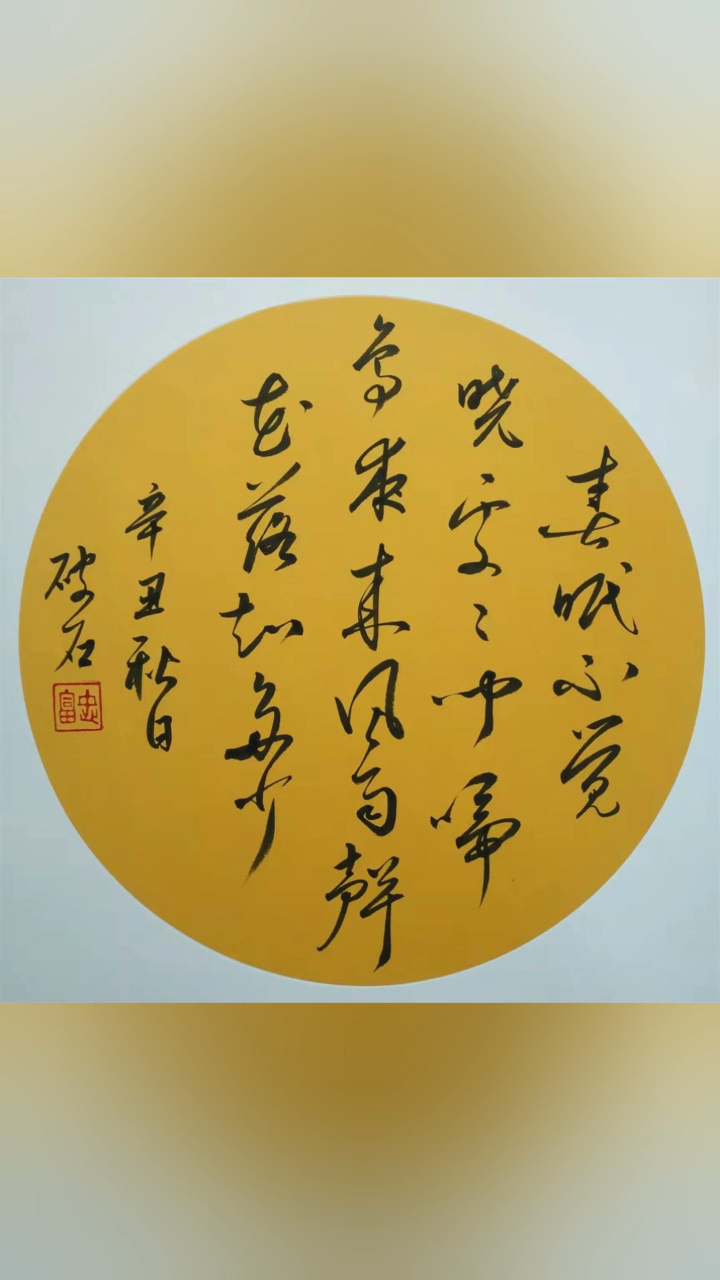 春眠不觉
晓处〻闻啼
鸟夜来风雨聲
花落知多少
辛丑秋日
破石
忠富